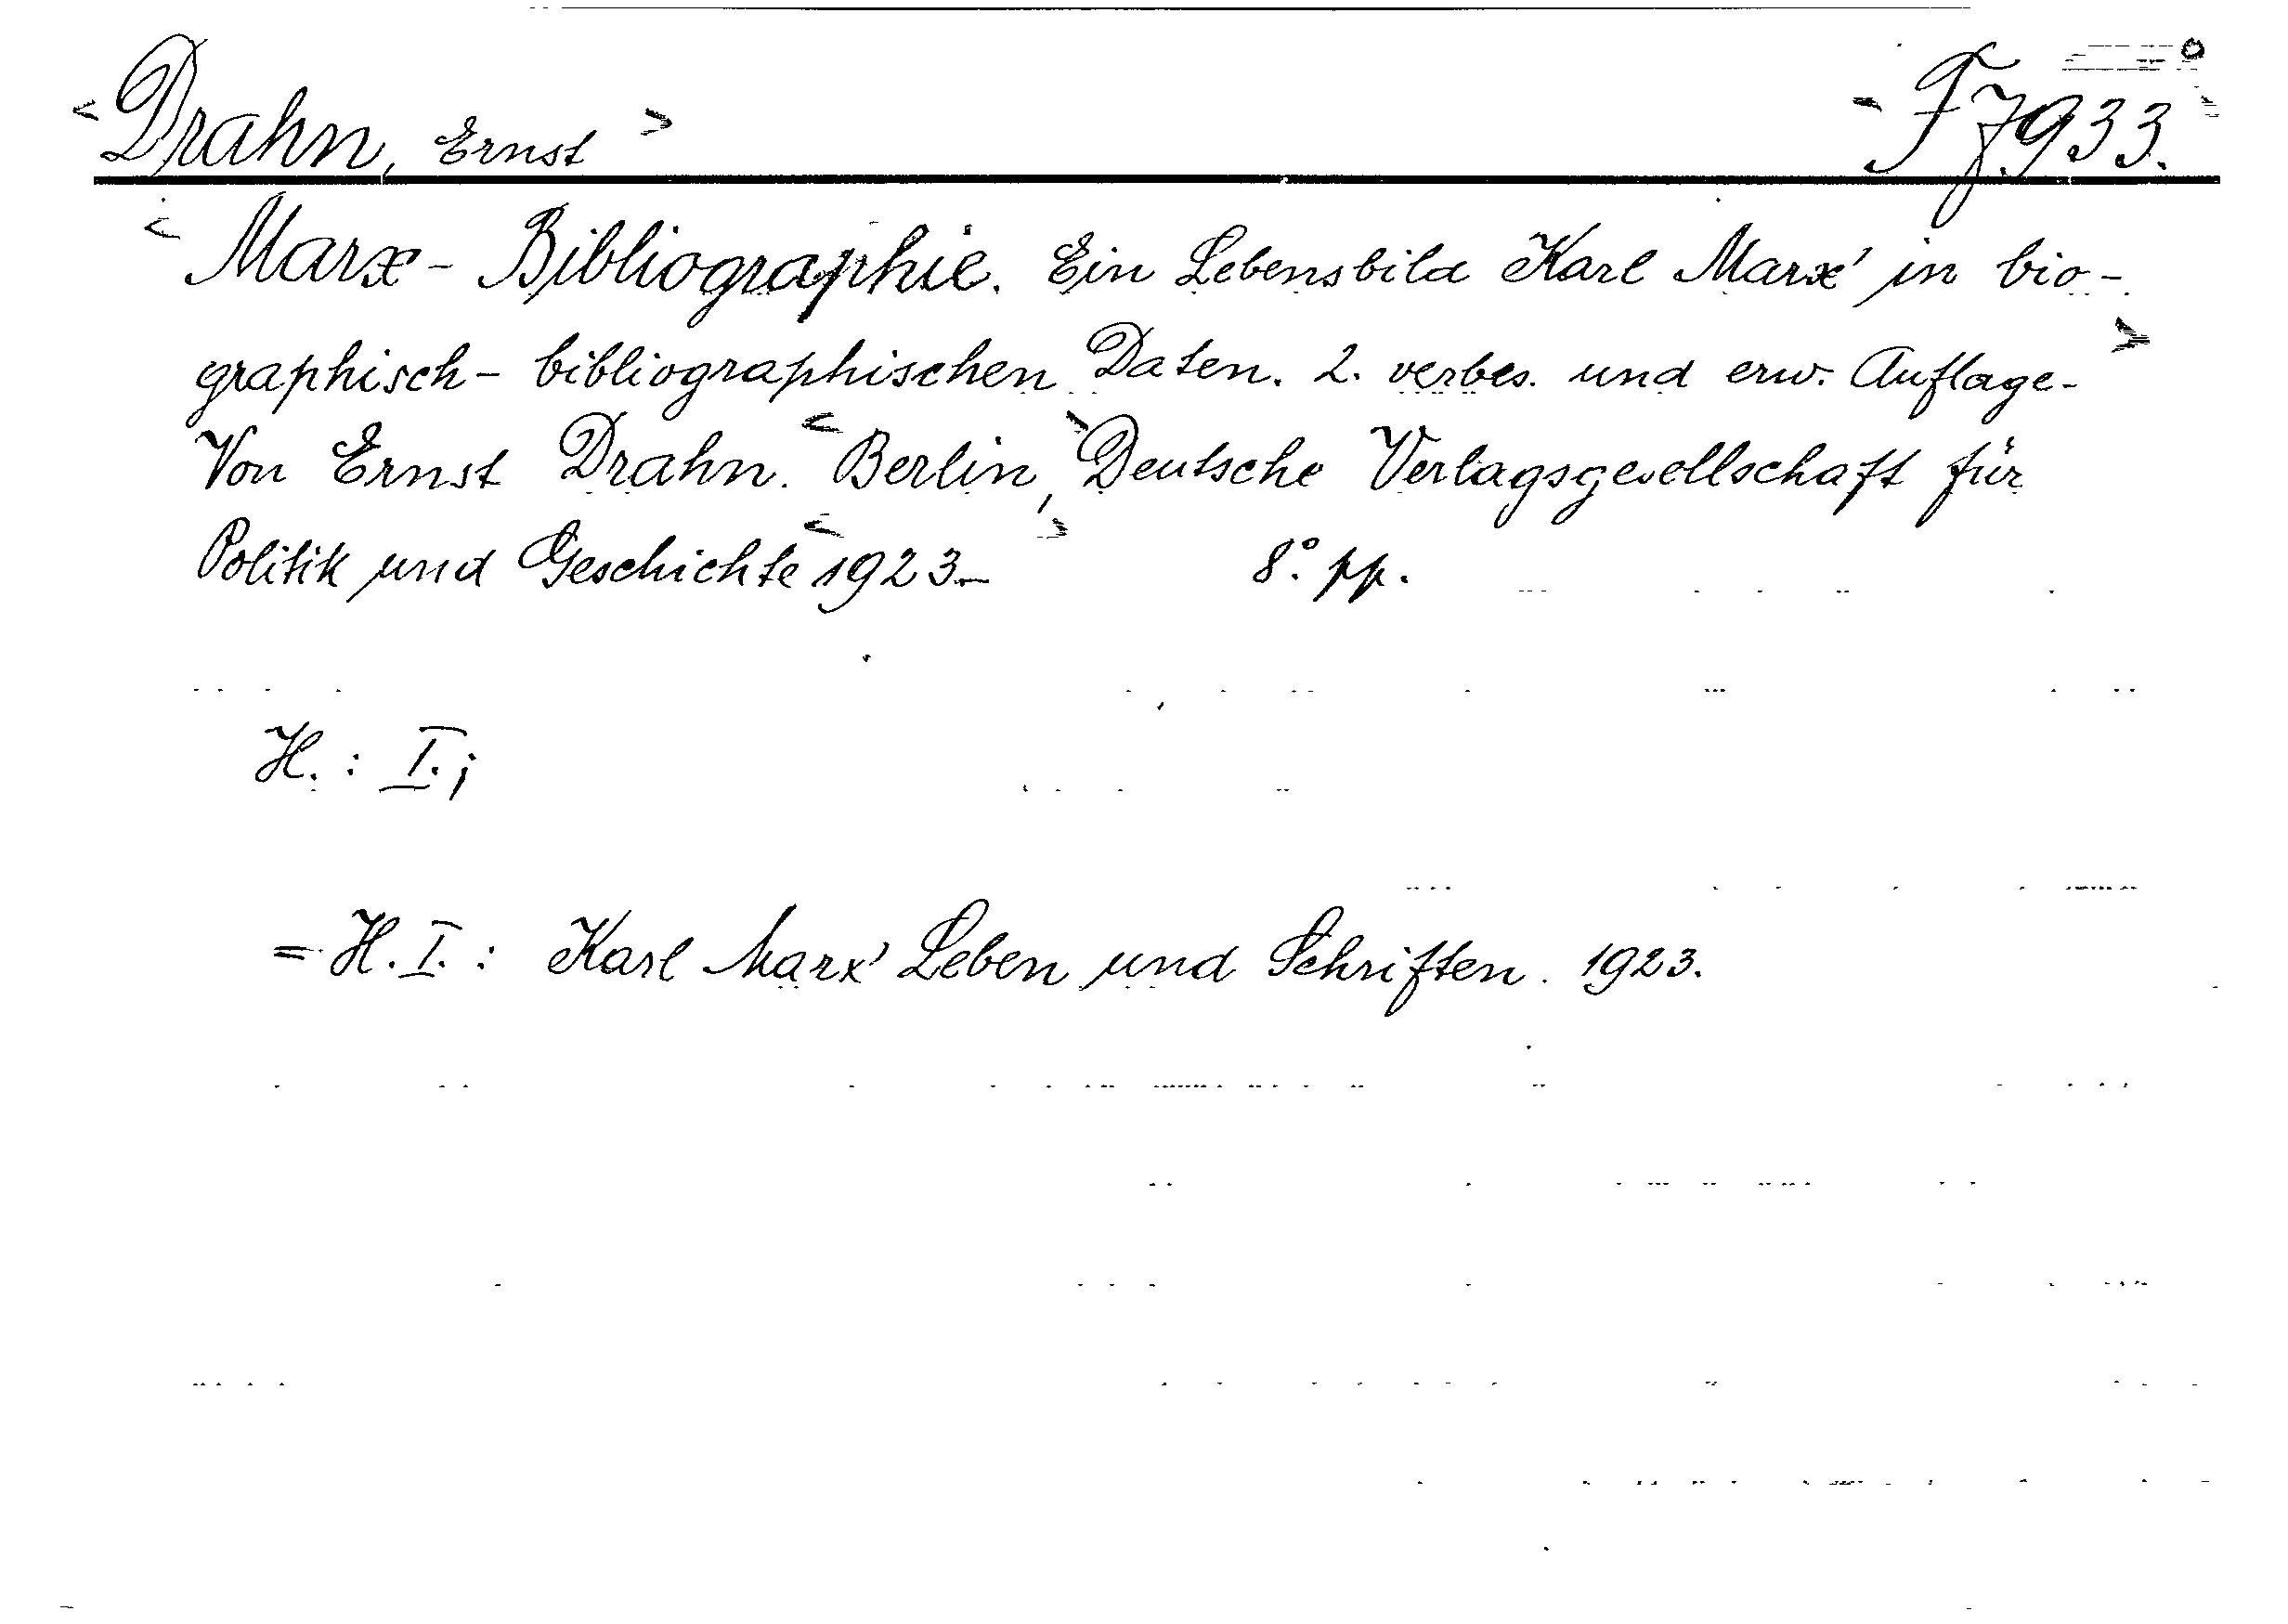 <Drahn, Ernst> - F 7933.
<Marx-Bibliographie. Ein Lebensbild Karl Marx' in bio-
graphisch-bibliographischen Daten. 2. verbes. und erw. Auflage->
Von Ernst Drahn. <Berlin,> Deutsche Verlagsgesellschaft für
Politik und Geschichte <1923-> 8° pp.
H. : I. ;
= H. I. : Karl Marx' Leben und Schriften. 1923.